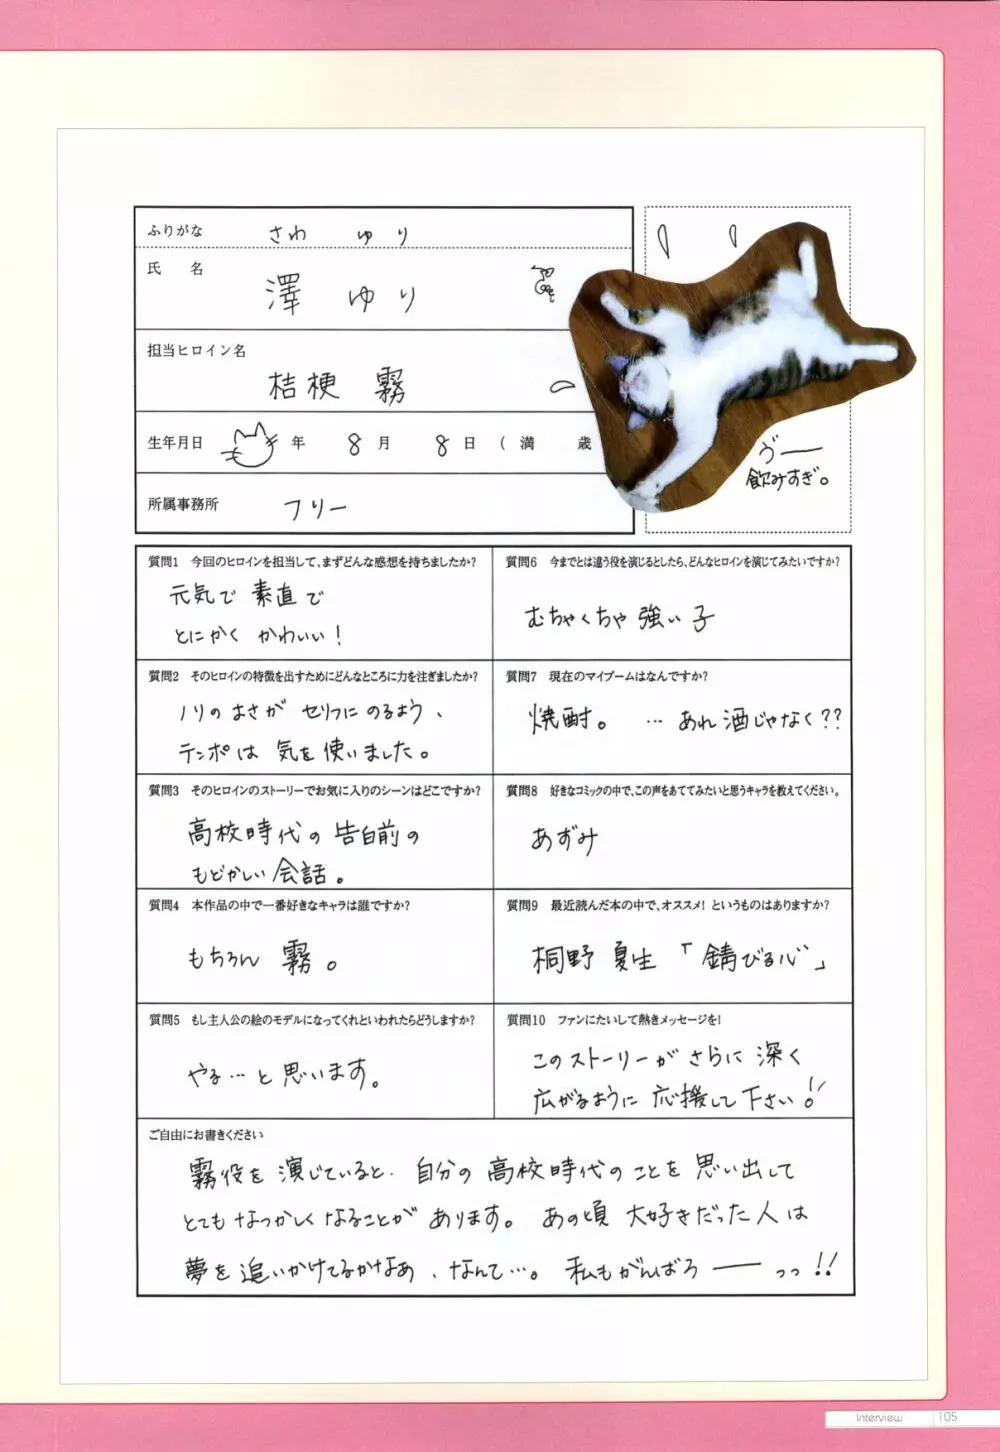 ふりがな さわ ゆり
氏 名
澤 ゆり
担当ヒロイン名
桔梗 霧
生年月日 年 8月 8日 (満 歳
所属事務所 フリー
ゔー
飲みすぎ。
質問1 今回のヒロインを担当して、まずどんな感想を持ちましたか?
元気で 素直で
とにかく かわいい!
質問2 そのヒロインの特徴を出すためにどんなところに力を注ぎましたか?
ノリのよさが セリフにのるよう、
テンポは 気を使いました。
質問3 そのヒロインのストーリーでお気に入りのシーンはどこですか?
高校時代の告白前の
もどかしい会話。
質問4 本作品の中で一番好きなキャラは誰ですか?
もちろん 霧。
質問5 もし主人公の絵のモデルになってくれといわれたらどうしますか?
やる…と思います。
質問6 今までとは違う役を演じるとしたら、どんなヒロインを演じてみたいですか?
むちゃくちゃ強い子
質問7 現在のマイブームはなんですか?
焼酎。 … あれ酒じゃなく??
質問8 好きなコミックの中で、この声をあててみたいと思うキャラを教えてください。
あずみ
質問9 最近読んだ本の中で、オススメ! というものはありますか?
桐野 夏生 「錆びる心」
質問10 ファンにたいして熱きメッセージを!
このストーリーが さらに 深く
広がるように 応援して下さい!
ご自由にお書きください
霧役を演じていると、自分の高校時代のことを思い出して
とても なつかしくなることが あります。あの頃 大好きだった人は
夢を追いかけてるかなぁ、なんて…。 私もがんばろーーっっ!!
Interview 105